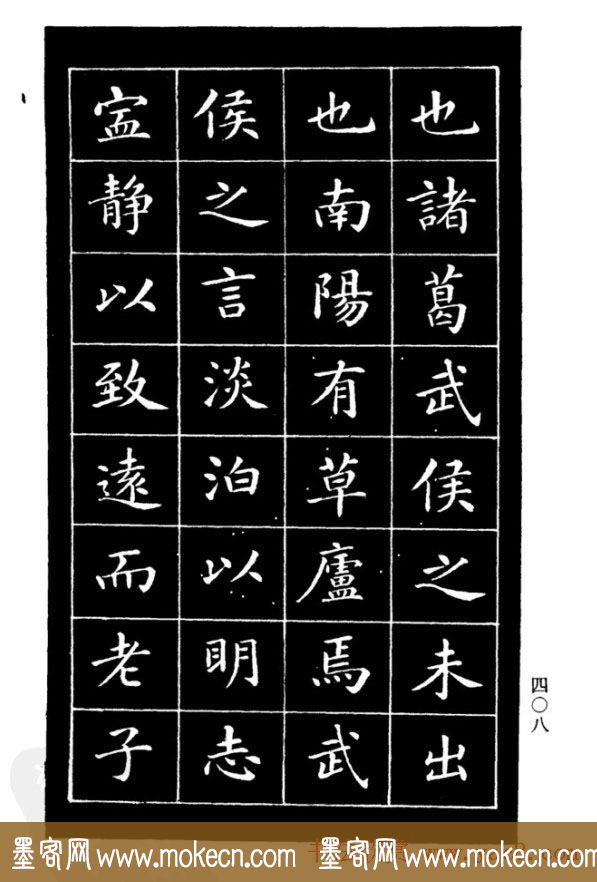 也諸葛武侯之未出
也南陽有草廬焉武
侯之言淡泊以明志
寍静以致遠而老子
四〇八
墨客网 www.mokecn.com 墨客网 www.mokecn.com